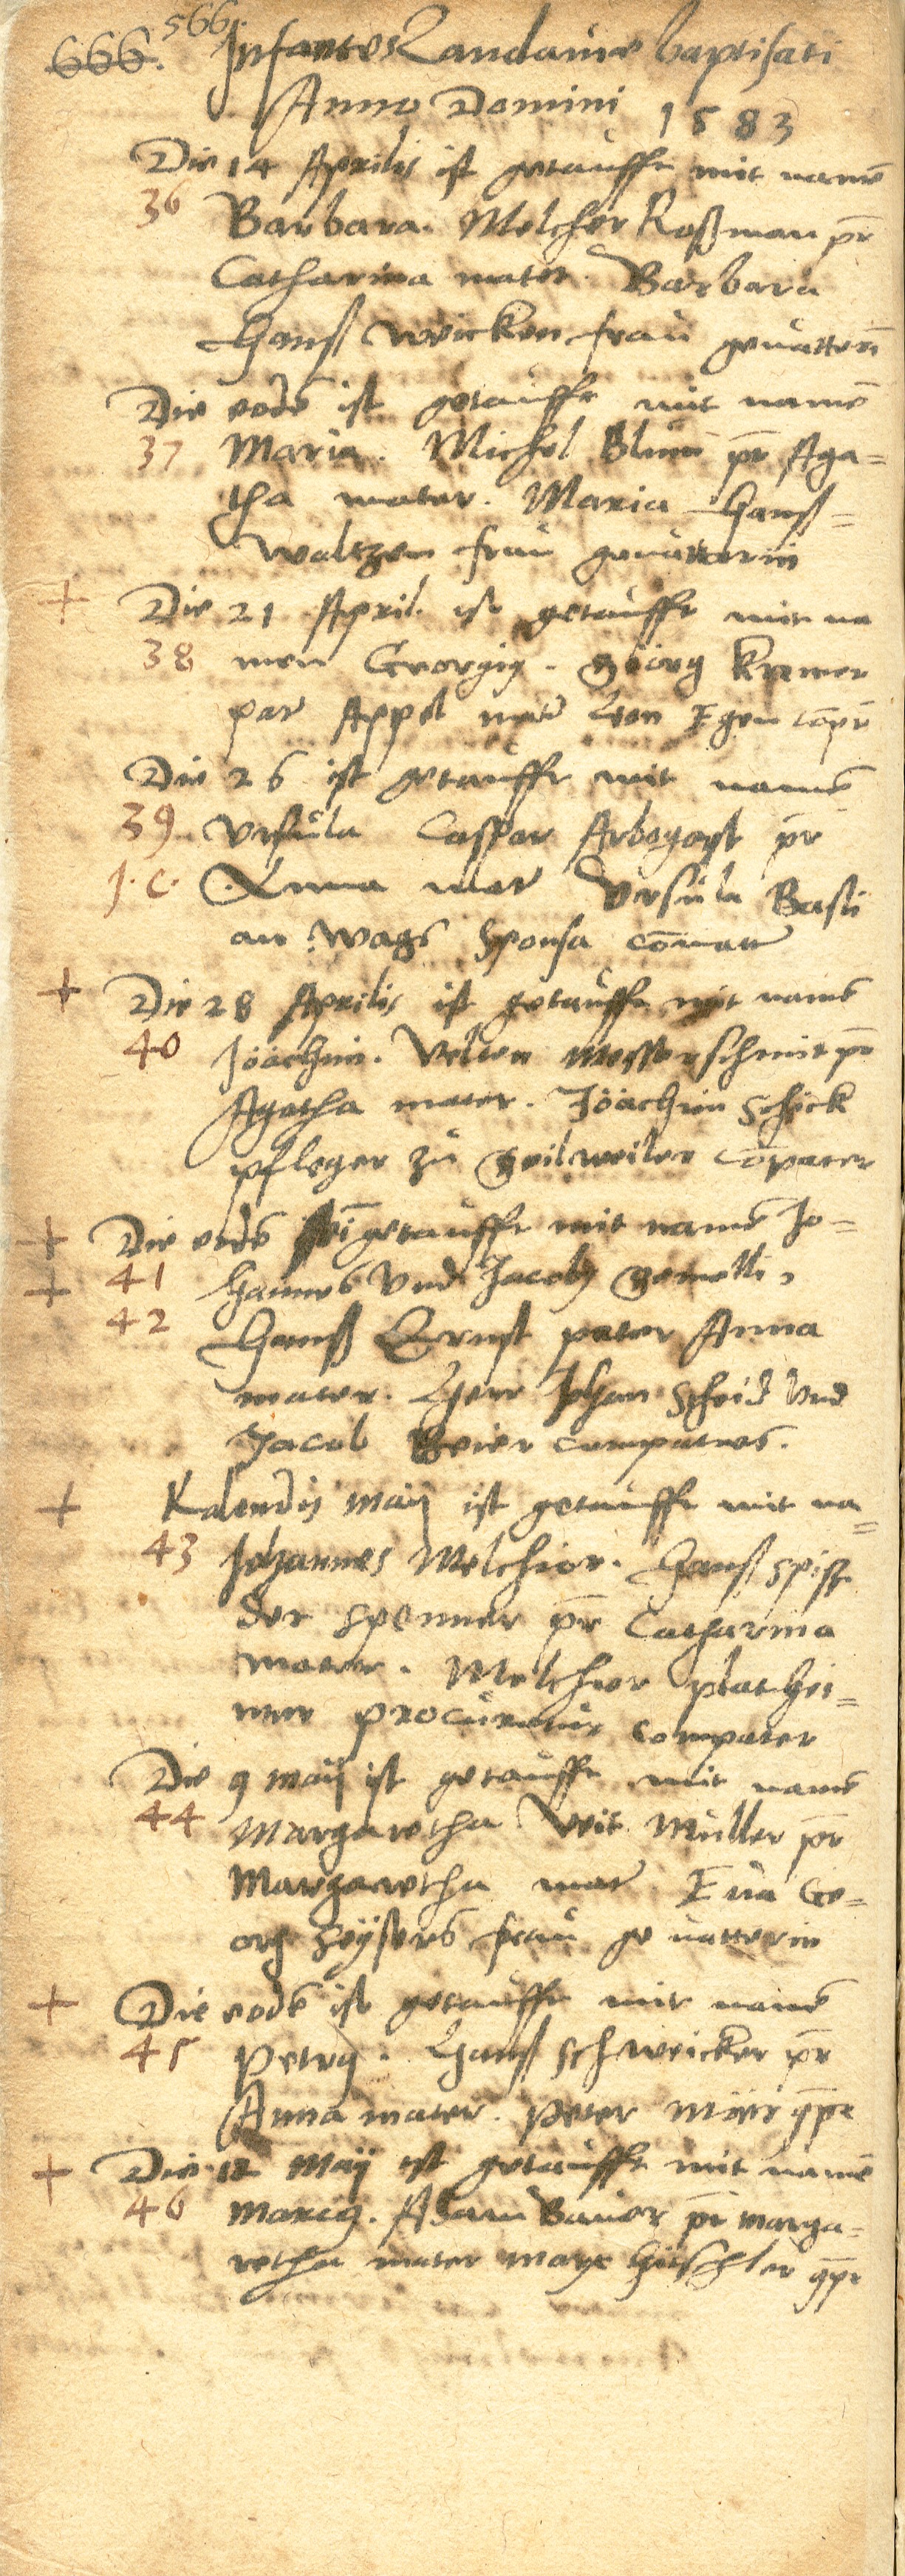 666. 566.
Infantes Landauiae baptisati
Anno Domini 1583
Die 14 Aprilis ist getaufft mit namē
36 Barbara. Melcher Roßman pr̄
Catharina mater. Barbara
Hanß Weicken frau geuatterī
Die eodē ist getaufft mit namē
37 Maria. Michel Blum pr̄ Aga=
tha mater. Maria Hanß=
Waltzen frau geuatterin
+ Die 21 April. ist getaufft mit na
38 men Georgig. Georg Kremer
par Appel mat
Die 26 ist getaufft mit namē
39 Vrsula Caspar Arbogast pr̄
J. C. Anna mat Vrsula Basti
an Wags Sponsa cōmatr
+ Die 28 Aprilis ist getaufft mit namē
40 Joachim. Velten Messerschmit pr̄
Agatha mater. Joachim Scheck
pfleger zu Geilweiler cōpater
+ Die eodē getaufft mit namē Jo=
+ 41 hannes Vnd Jacoby gemelli,
42 Hanß Ernst pater Anna
mater. Herr Johan Scheid Vnd
Jacob Beier compatres.
+ Kalendis Maij ist getaufft mit na=
43 Johannes Melchior. Hanß Spist
der Spenner pr̄ Catharina
mater. Melchior plathei=
mer procurator compater
Die 9 Maij ist getaufft mit namē
44 Margaretha Veit Müller pr̄
Margaretha mat Eua Ge=
org Seysers frau geuatterin
+ Die eodē ist getaufft mit namē
45 Petrg. Hanß Schweicker pr̄
Anna mater. Peter
+ Die 12 Maij ist getaufft mit namē
46 Marcg. Adam Bauer pr̄ Marga=
retha mater Marx